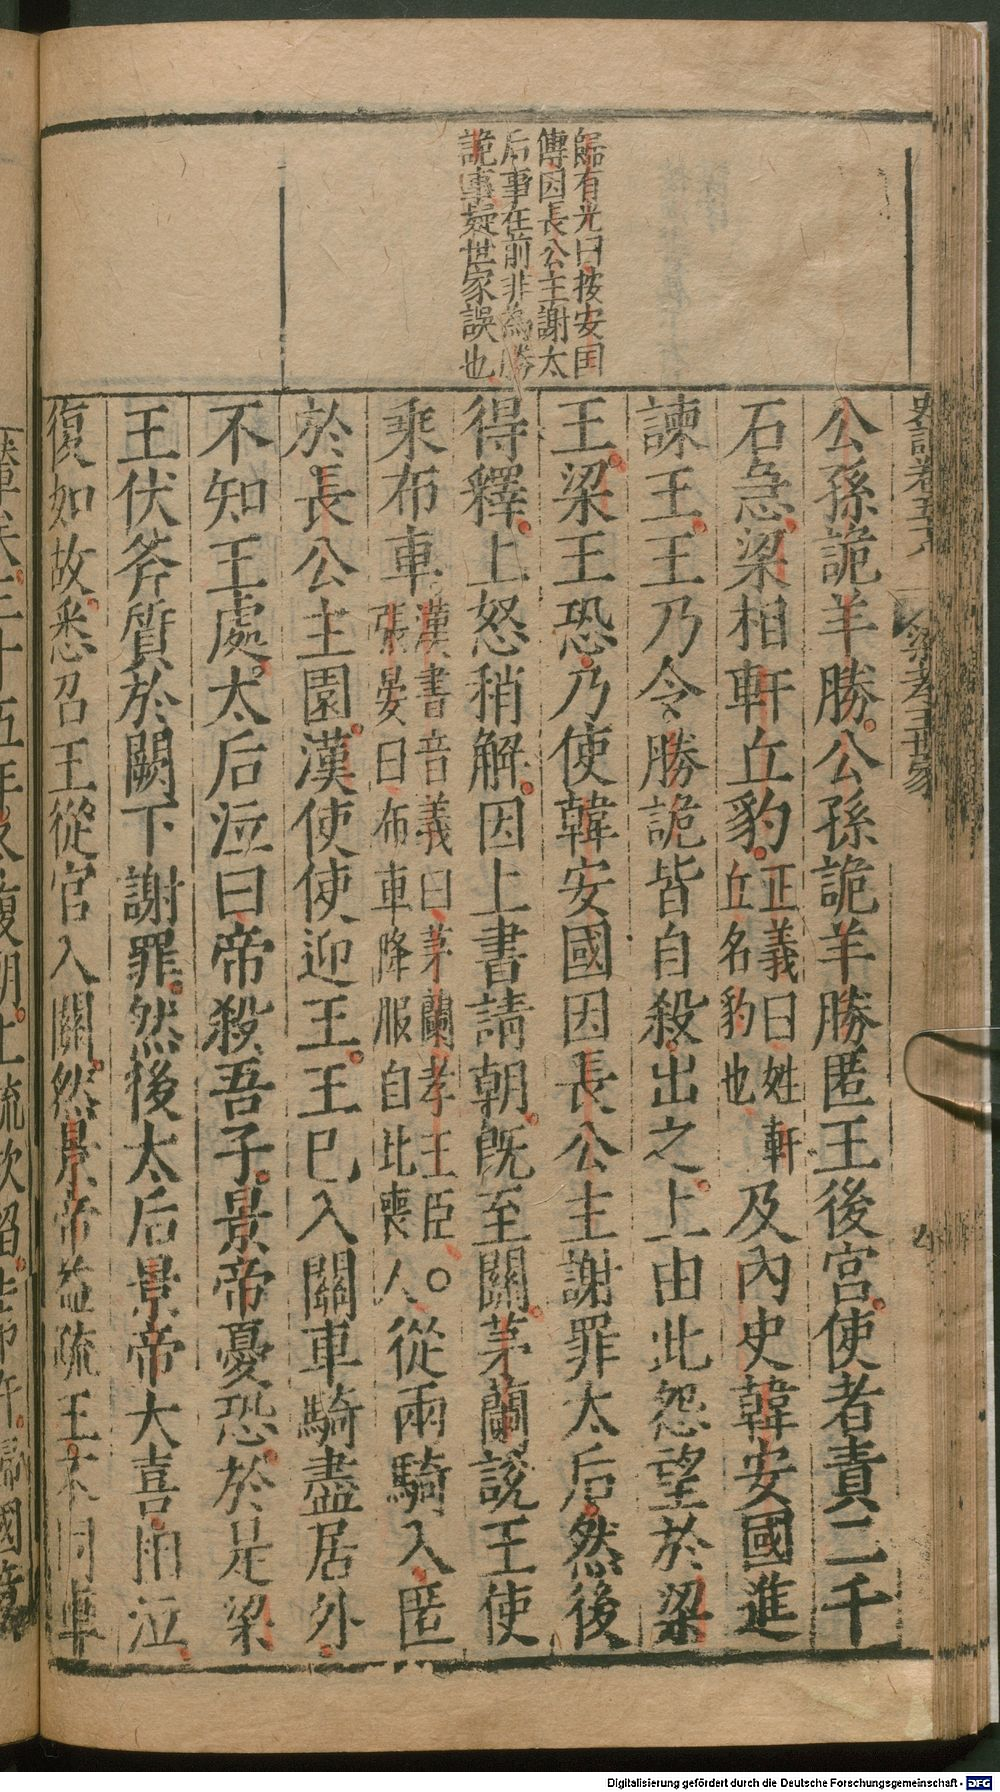 歸有光曰按安国
傅因長公主謝太
后事在前非為勝
詭事疑世家誤也
史記卷五十八 梁孝王世家
公孫詭羊勝公孫詭羊勝匿王後宮使者責二千
石急梁相軒丘豹
正義曰姓軒
丘名豹也
及內史韓安國進
諫王王乃令勝詭皆自殺出之上由此怨望於梁
王梁王恐乃使韓安國因長公主謝罪太后然後
得釋上怒稍解因上書請朝旣至關茅蘭說王使
乘布車
漢書音義曰茅蘭孝王臣○
張晏曰布車降服自比喪人
從兩騎入匿
於長公主園漢使使迎王王已入關車騎盡居外
不知王處太后泣曰帝殺吾子景帝憂恐於是梁
王伏斧質於闕下謝罪然後太后景帝大喜相泣
復如故悉召王從官入關然景帝益疏王不同車
Digitalisierung gefördert durch die Deutsche Forschungsgemeinschaft - DFG